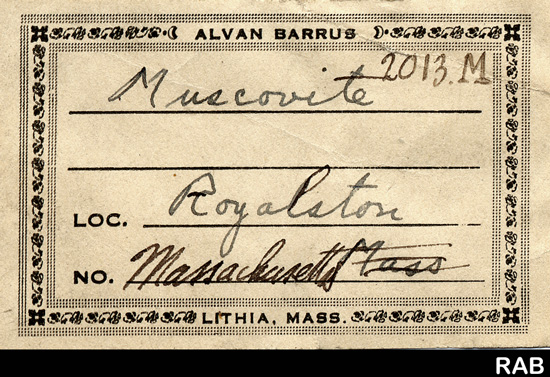 ALVAN BARRUS
2013.M
Muscovite
LOC. Royalston
NO. Massachusetts Mass
LITHIA, MASS.
RAB